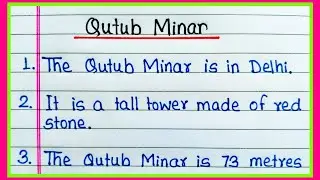 Qutub Minar
1. The Qutub Minar is in Delhi.
2. It is a tall tower made of red
stone.
3. The Qutub Minar is 73 metres